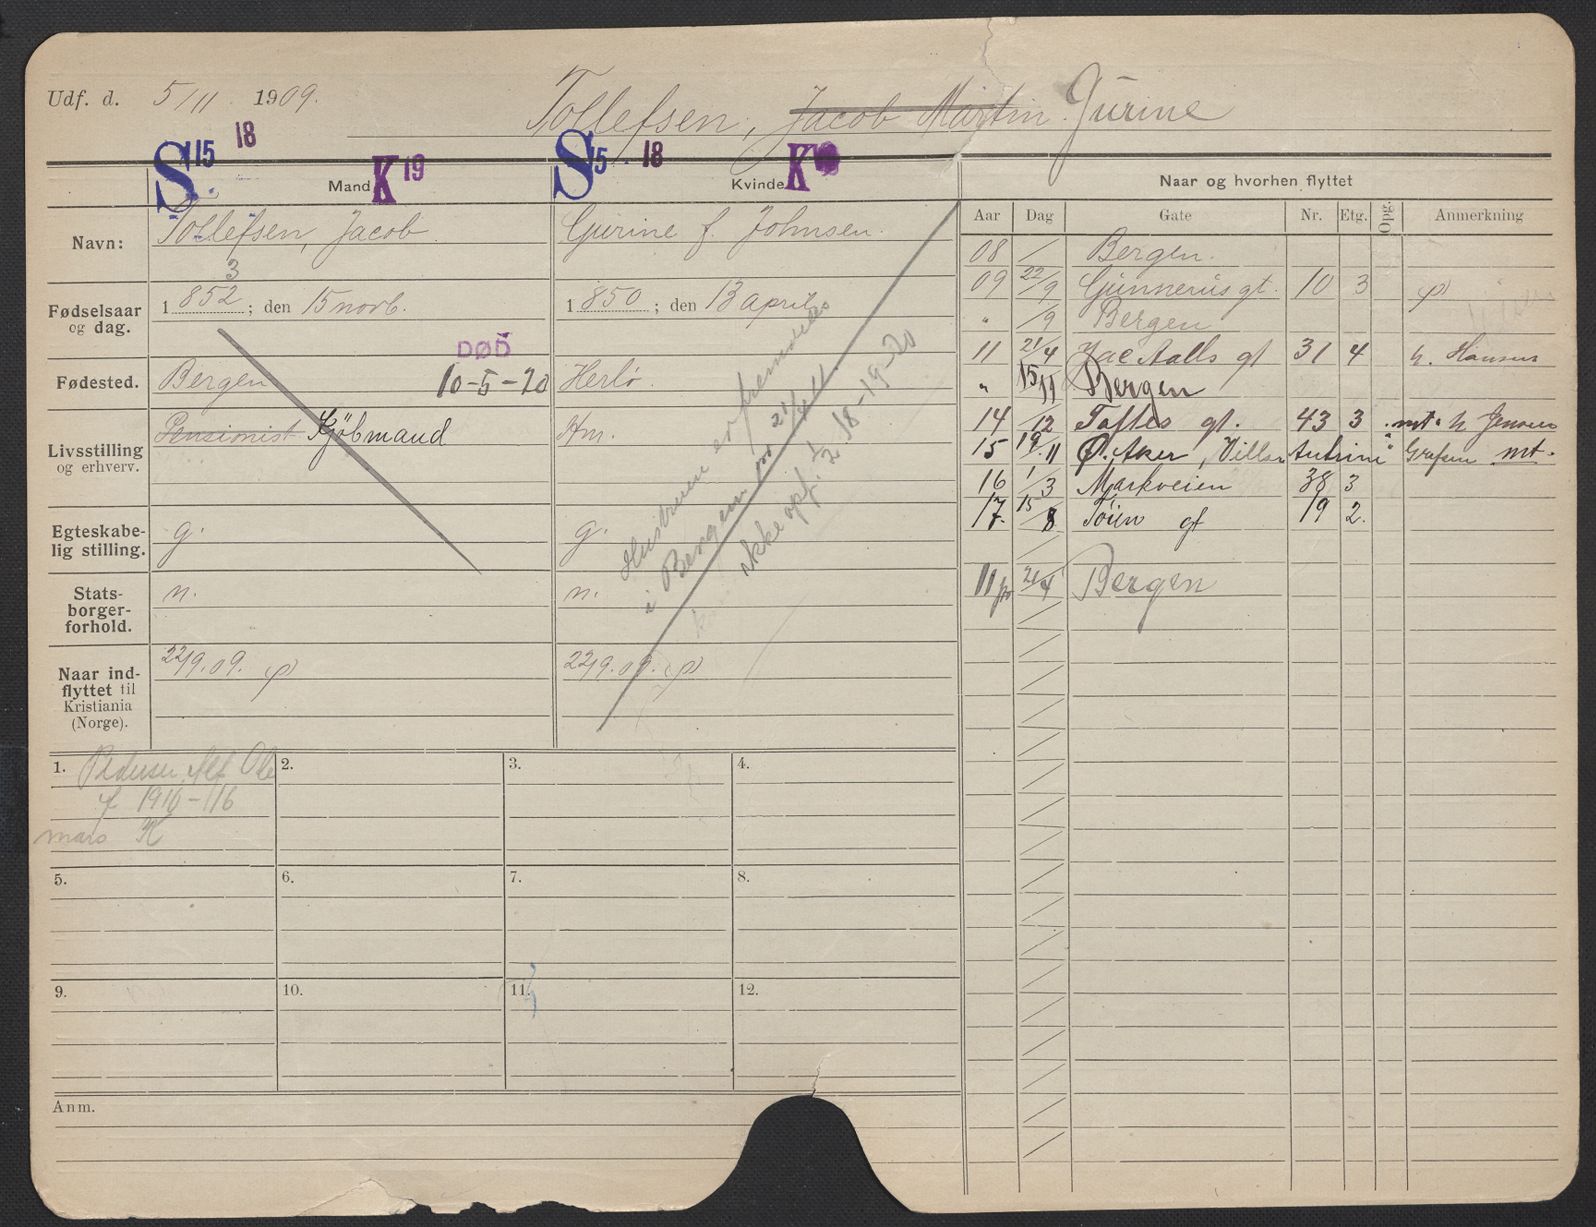 Udf. d. 5/11 1909.
Tollefsen, Jacob Martin. Gurine
S 15 18 K 19
Mand
S 15 18 K
Kvinde
Naar og hvorhen flyttet
Aar Dag Gate Nr. Etg. Opg. Anmerkning
Navn: Tollefsen, Jacob. Gurine f. Johnsen.
3
Fødselsaar og dag. 1852; den 15 novb. 1850; den 13 april
DØD
10-5-20
Fødested. Bergen Herlø.
Livsstilling og erhverv. Pensionist Kjöbmand Hm.
Egteskabelig stilling. g. g.
Statsborgerforhold. n. n.
Naar indflyttet til Kristiania (Norge). 22/9.09. 22/9.09.
Hustruen er fremdeles
i Bergen 21/4 11.
ikke opf. 1/2 18-19-20
08 / Bergen.
09 22/9 Gunnerius gt. 10 3
" /9 Bergen
11 21/4 Jac Aalls gt 31 4 h. Hansen
" 15/11 Bergen
14 /12 Toftes gt. 43 3 mt. h Jensen
15 19/11 Ø. Aker, Villa Grefsen mt.
16 1/3 Markveien 38 3
17. 15/8 Töien gt 19 2.
11 21/4 Bergen
1. Pedersen, Alf Ole
f 1910-
mars K
2.
3.
4.
5.
6.
7.
8.
9.
10.
11.
12.
Anm.